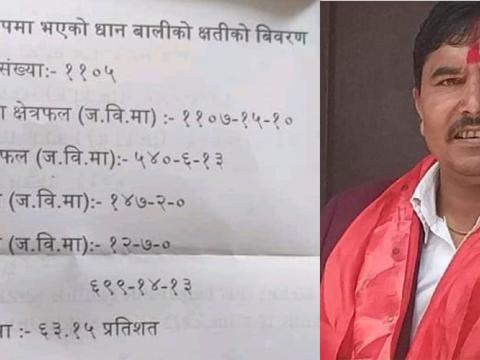 पमा भएको धान बालीको क्षतीको बिवरण
संख्या:- ११०५
ा क्षेत्रफल (ज.वि.मा) :- ११०७-१५-१०
फल (ज.वि.मा):- ५४०-६-१३
(ज.वि.मा):- १४७-२-०
(ज.वि.मा):- १२-७-०
६९९-१४-१३
मा:- ६३.१५ प्रतिशत